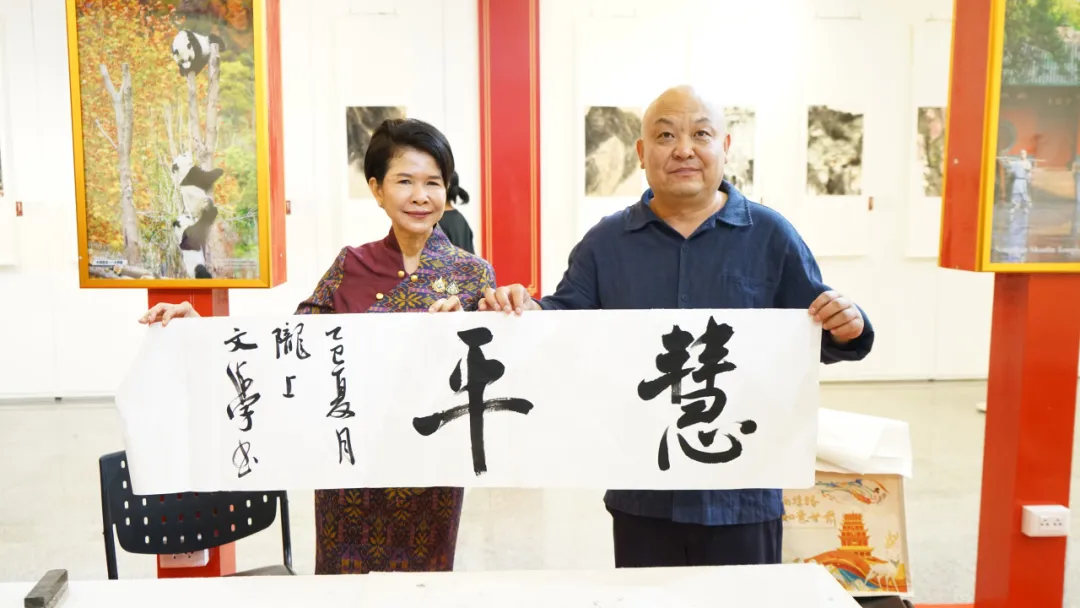 慧平
乙巳夏月
隴上
文學书
Songshan Shaolin Temple
如意甘肃